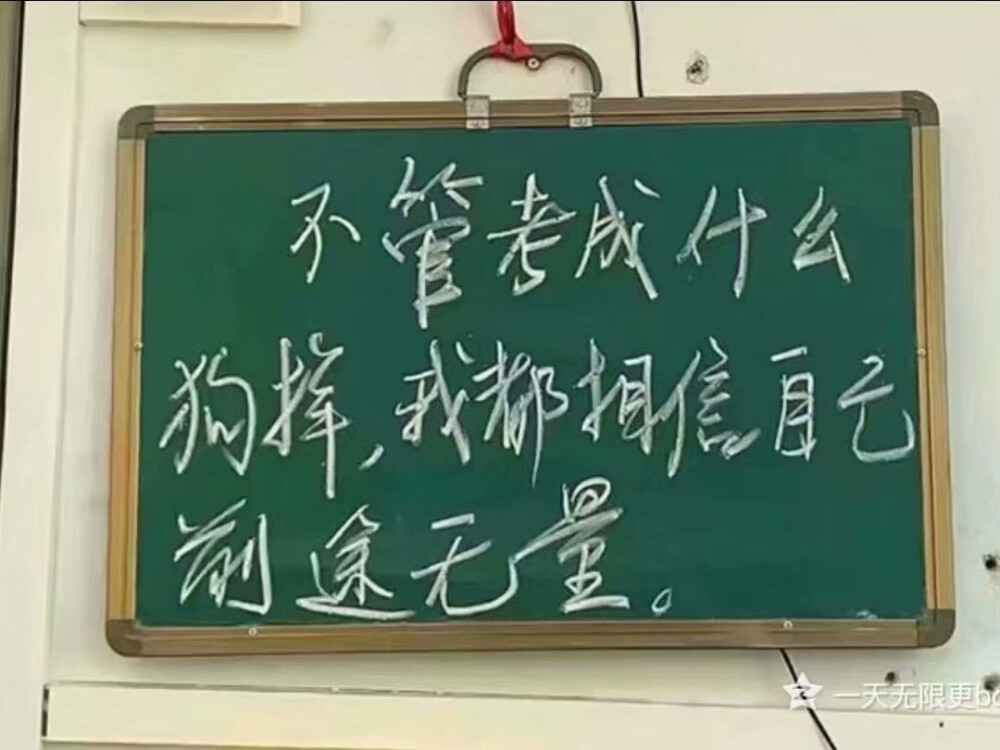 不管考成什么
狗样,我都相信自己
前途无量。
一天无限更bo